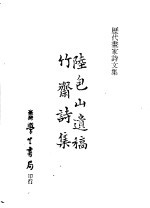 歷代畫家詩文集
陸包山遺稿
竹齋詩集
臺灣學生書局印行